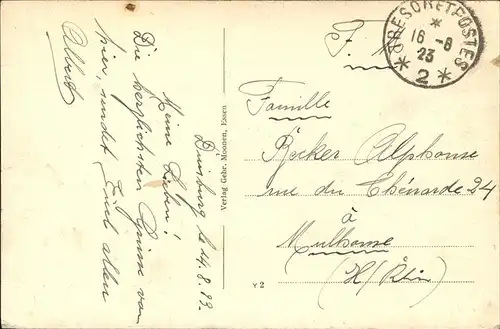 Duisburg le 14.8.23.
Meine Lieben!
Die herzlichsten Grüsse von
hier, sendet Euch allen
Albert
Verlag Gebr. Moonen, Essen
V 2
TRESOR ET POSTES
*
16 - 8
23
* 2 *
F. M.
Famille
Röcker Alphonse
rue du Ebénarde 24
à
Mulhouse
(H/Rhin)